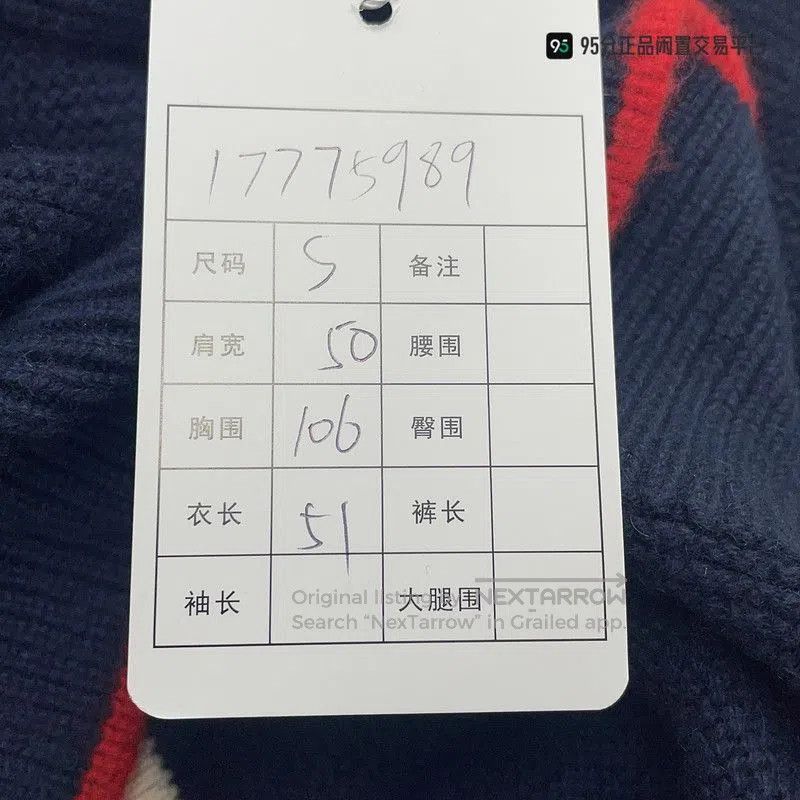 95 95分正品闲置交易平台
17775989
尺码 S 备注
肩宽 50 腰围
胸围 106 臀围
衣长 51 裤长
袖长 大腿围
Original listing by NEXTARROW
Search “NexTarrow” in Grailed app.